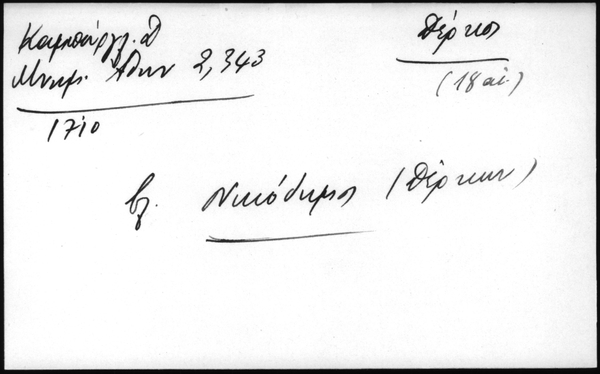 Καμπούρογλ. Δ
Μνημ. Αθην 2, 343
1710
Δέρκοι
(18 αἰ.)
βλ. Νικόδημος (Δέρκων)